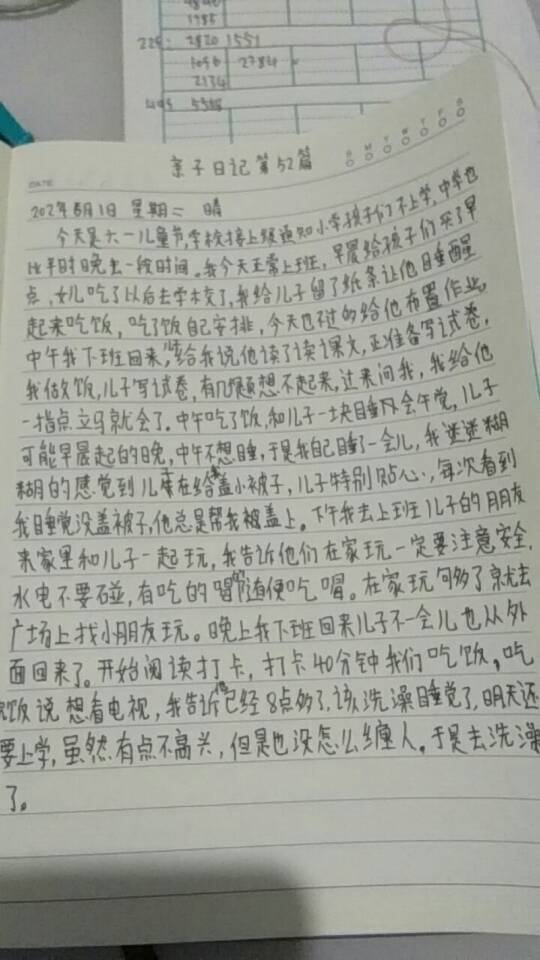 1985
229: 2820 1551
1056 2784
2134
495
亲子日记第52篇
DATE
S M T W T F S
202年6月1日 星期二 晴
今天是六一儿童节,学校接上级通知小学孩子们不上学,中学也
比平时晚去一段时间。我今天正常上班,早晨给孩子们买了早
点,女儿吃了以后去学校了,我给儿子留了纸条让他自睡醒
起来吃饭,吃了饭自己安排,今天也不过的给他布置作业。
中午我下班回来,给我说他读了读课文,正准备写试卷,
我做饭,儿子写试卷,有几题想不起来,过来问我,我给他
一指点立马就会了。中午吃了饭,和儿子一块睡会午觉,儿子
可能早晨起的晚,中午不想睡,于是我自己睡了一会儿,我迷迷糊
糊的感觉到儿子在给我盖小被子,儿子特别贴心,每次看到
我睡觉没盖被子,他总是帮我被盖上。下午我去上班儿子的朋友
来家里和儿子一起玩,我告诉他们在家玩一定要注意安全,
水电不要碰,有吃的喝的随便吃喝。在家玩够多了就去
广场上找小朋友玩。晚上我下班回来儿子不一会儿也从外
面回来了。开始阅读打卡,打卡40分钟我们吃饭,吃
饭说想看电视,我告诉他已经8点多了,该洗澡睡觉了,明天还
要上学,虽然有点不高兴,但是也没怎么缠人。于是去洗澡
了。